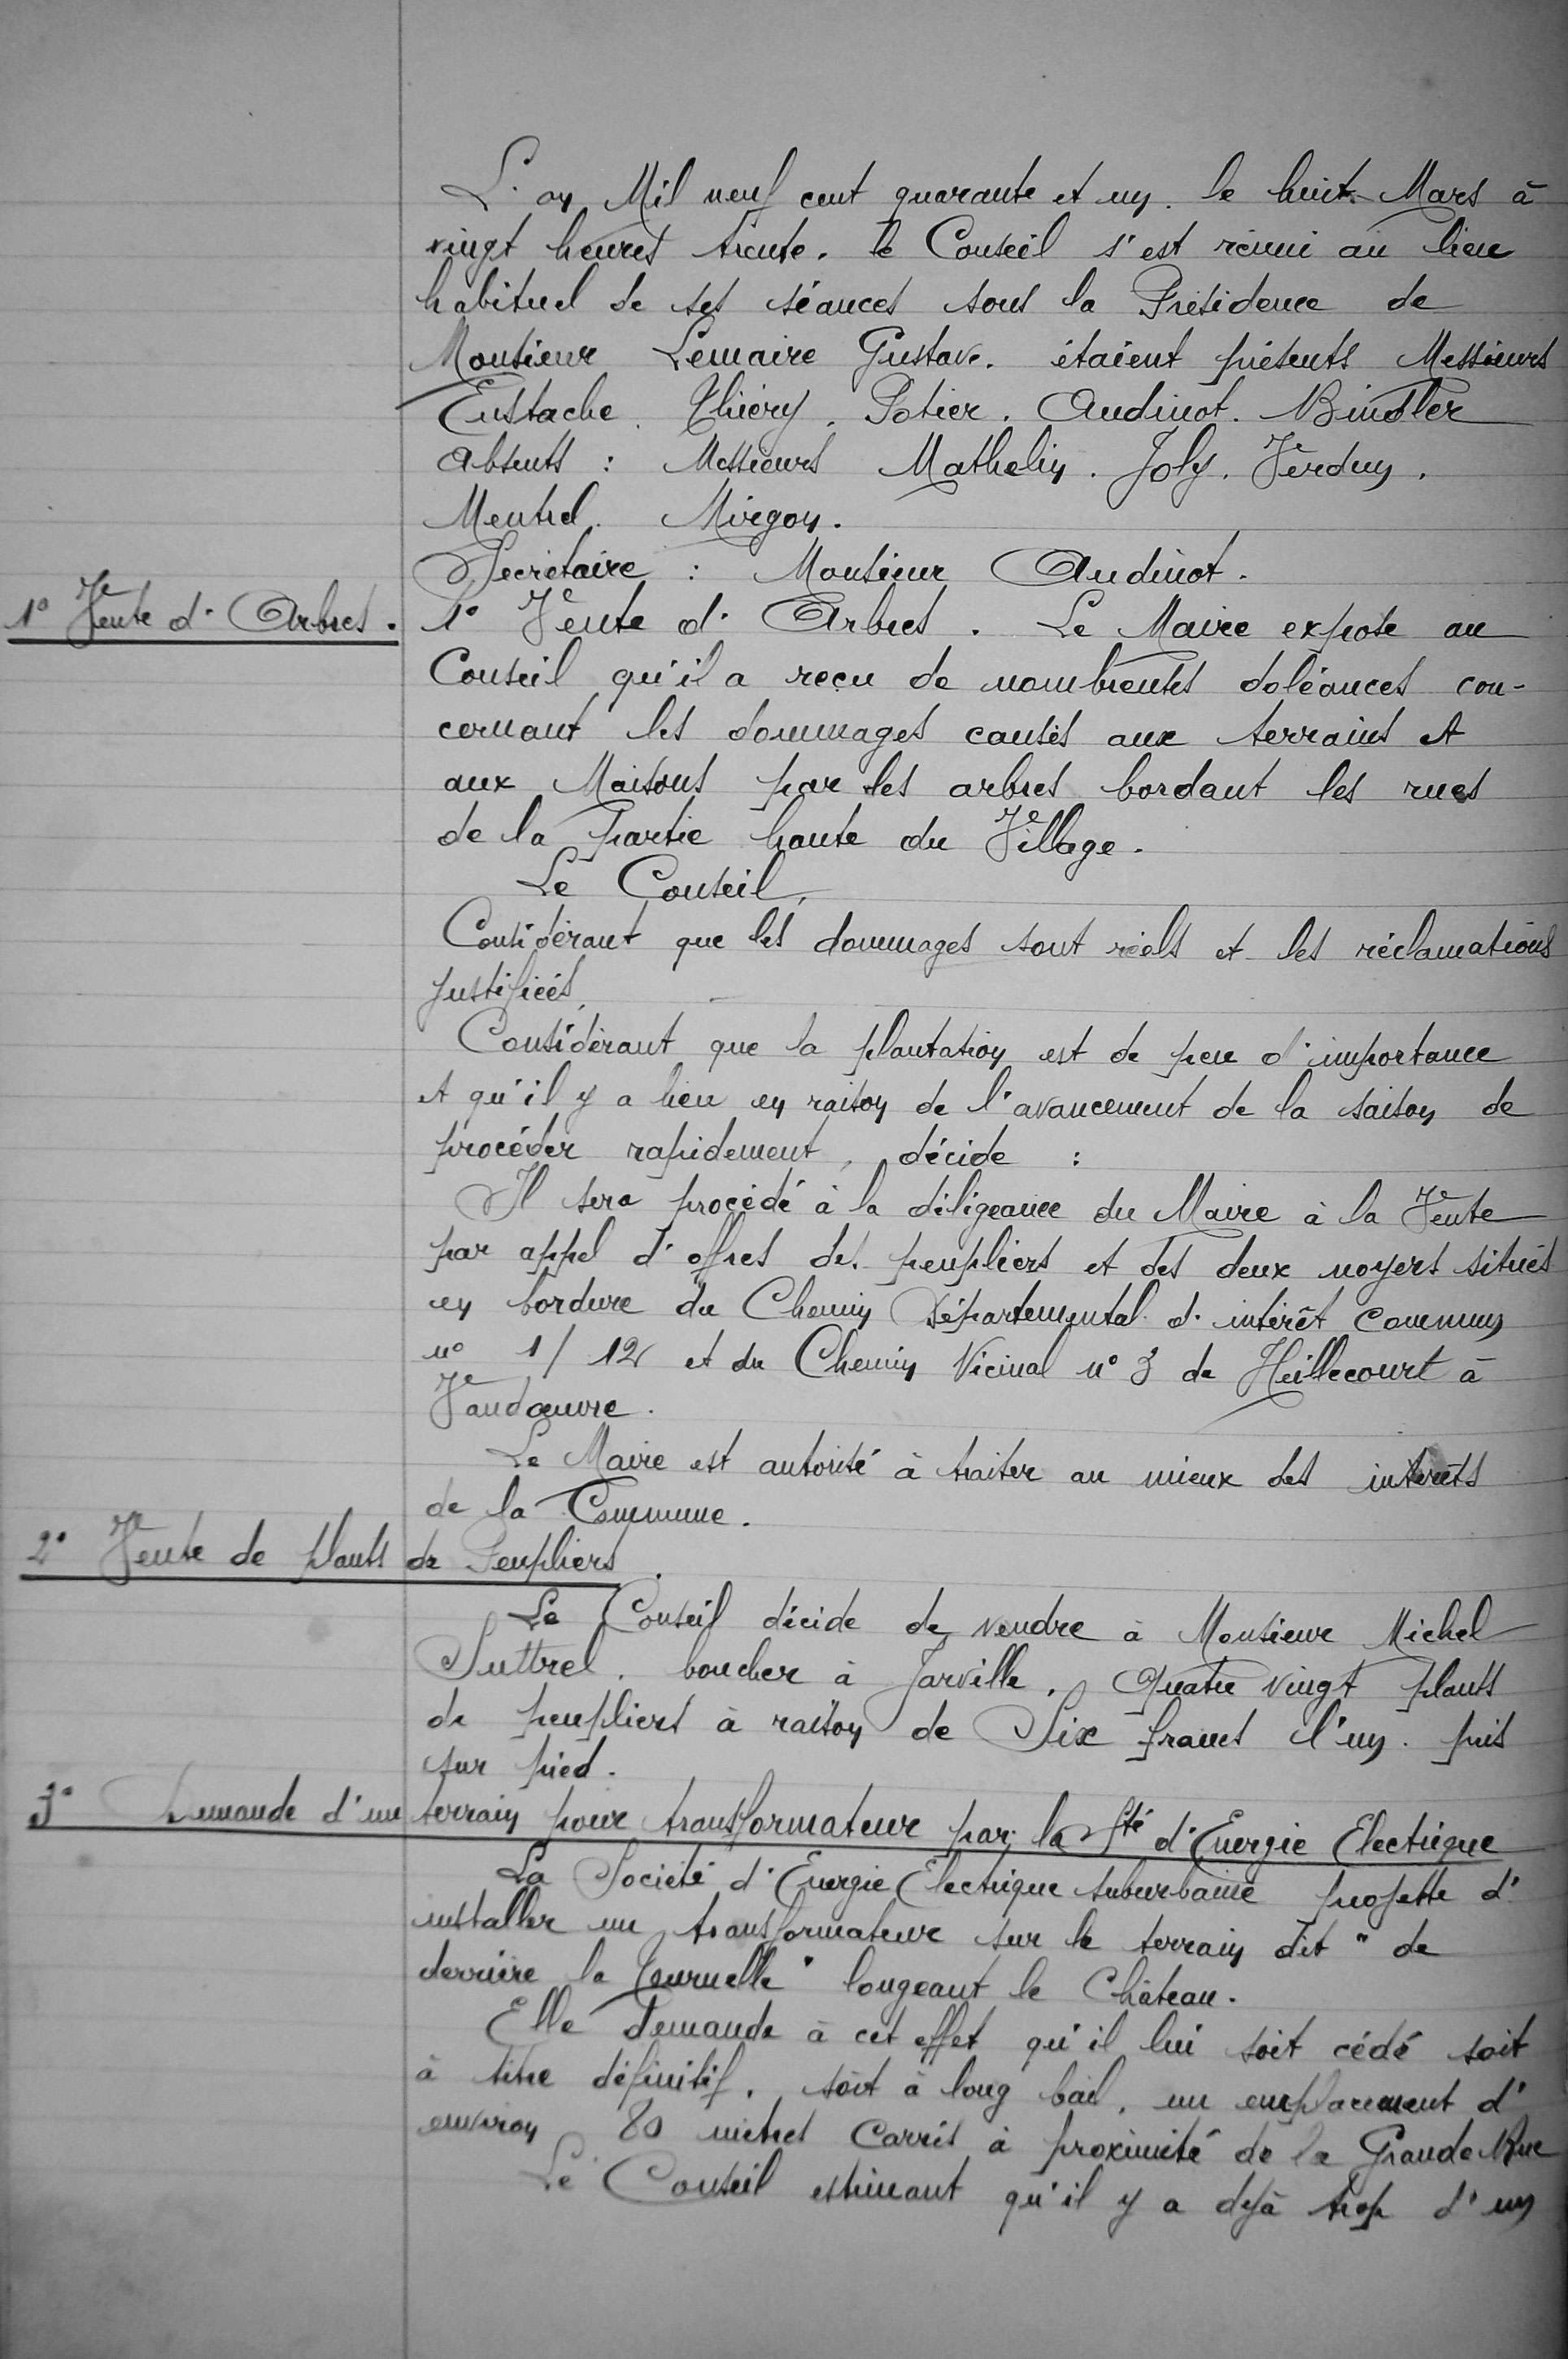 L'an Mil neuf cent quarante et un. le huit Mars à
vingt heures trente. le Conseil s'est réuni au lieu
habituel de ses séances sous la Présidence de
Monsieur Lemaire Gustave. étaient présents Messieurs
Eustache. Thiéry. Potier. Audinot. Bindler
Absents : Messieurs Mathelin. Joly. Verdun.
Mentrel. Mirgon.
Secrétaire : Monsieur Audinot.
1° Vente d'Arbres.
1° Vente d'Arbres. Le Maire expose au
Conseil qu'il a reçu de nombreuses doléances con-
cernant les dommages causés aux terrains et
aux Maisons par les arbres bordant les rues
de la partie haute du Village.
Le Conseil,
Considérant que les dommages sont réels et les réclamations
justifiées,
Considérant que la plantation est de peu d'importance
et qu'il y a lieu en raison de l'avancement de la saison de
procéder rapidement, décide :
Il sera procédé à la diligeance du Maire à la Vente
par appel d'offres des peupliers et des deux noyers situés
en bordure du Chemin Départemental d'intérêt commun
n° 1/12 et du Chemin Vicinal n° 3 de Heillecourt à
Vandœuvre.
Le Maire est autorisé à traiter au mieux des intérêts
de la Commune.
2° Vente de plants de Peupliers.
Le Conseil décide de vendre à Monsieur Michel
Suttrel. boucher à Jarville. Quatre vingt plants
de peupliers à raison de Six francs l'un. pris
sur pied.
3° Demande d'un terrain pour transformateur par la Sté d'Energie Electrique
La Société d'Energie Electrique suburbaine projette d'
installer un transformateur sur le terrain dit " de
derrière la Tournelle " longeant le Château.
Elle demande à cet effet qu'il lui soit cédé soit
à titre définitif. soit à long bail. un emplacement d'
environ 80 mètres carrés à proximité de la Grande Rue
Le Conseil estimant qu'il y a déjà trop d'un